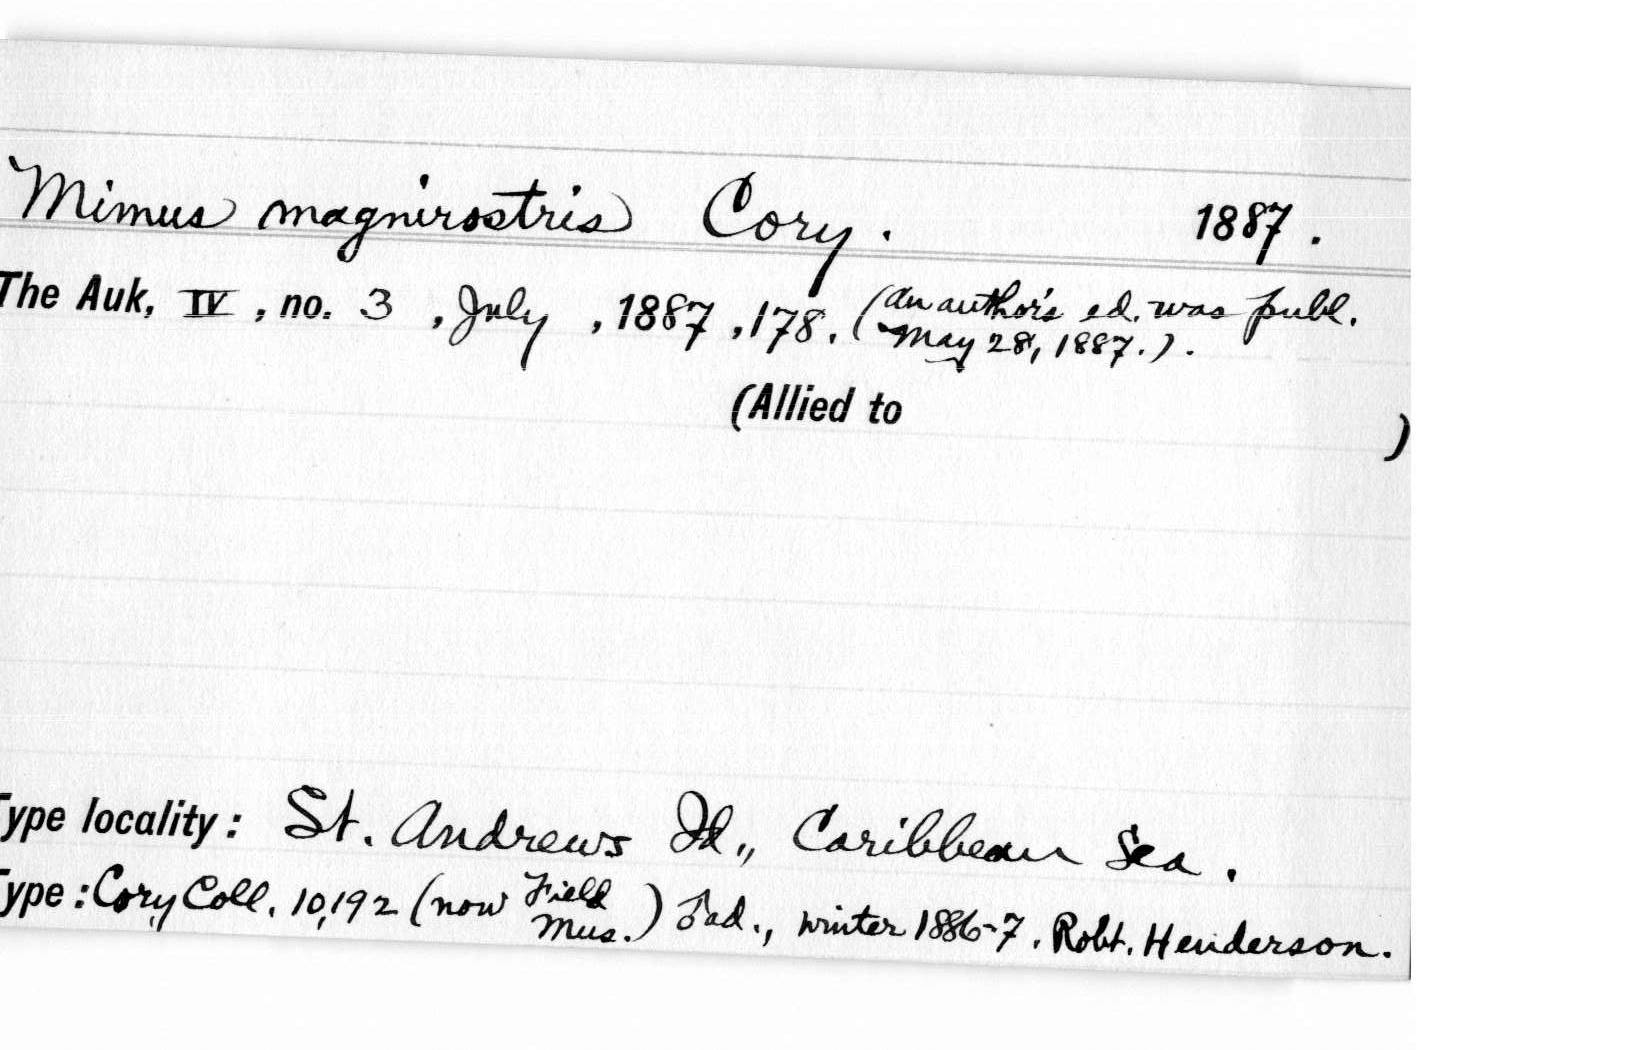 Mimus magnirostris Cory. 1887.
The Auk, IV, no. 3, July, 1887, 178. (An author's ed. was publ.
May 28, 1887.).
(Allied to )
Type locality: St. Andrews Id., Caribbean Sea.
Type: Cory Coll. 10,192 (now Field
Mus.) ♂ ad., winter 1886-7. Robt. Henderson.